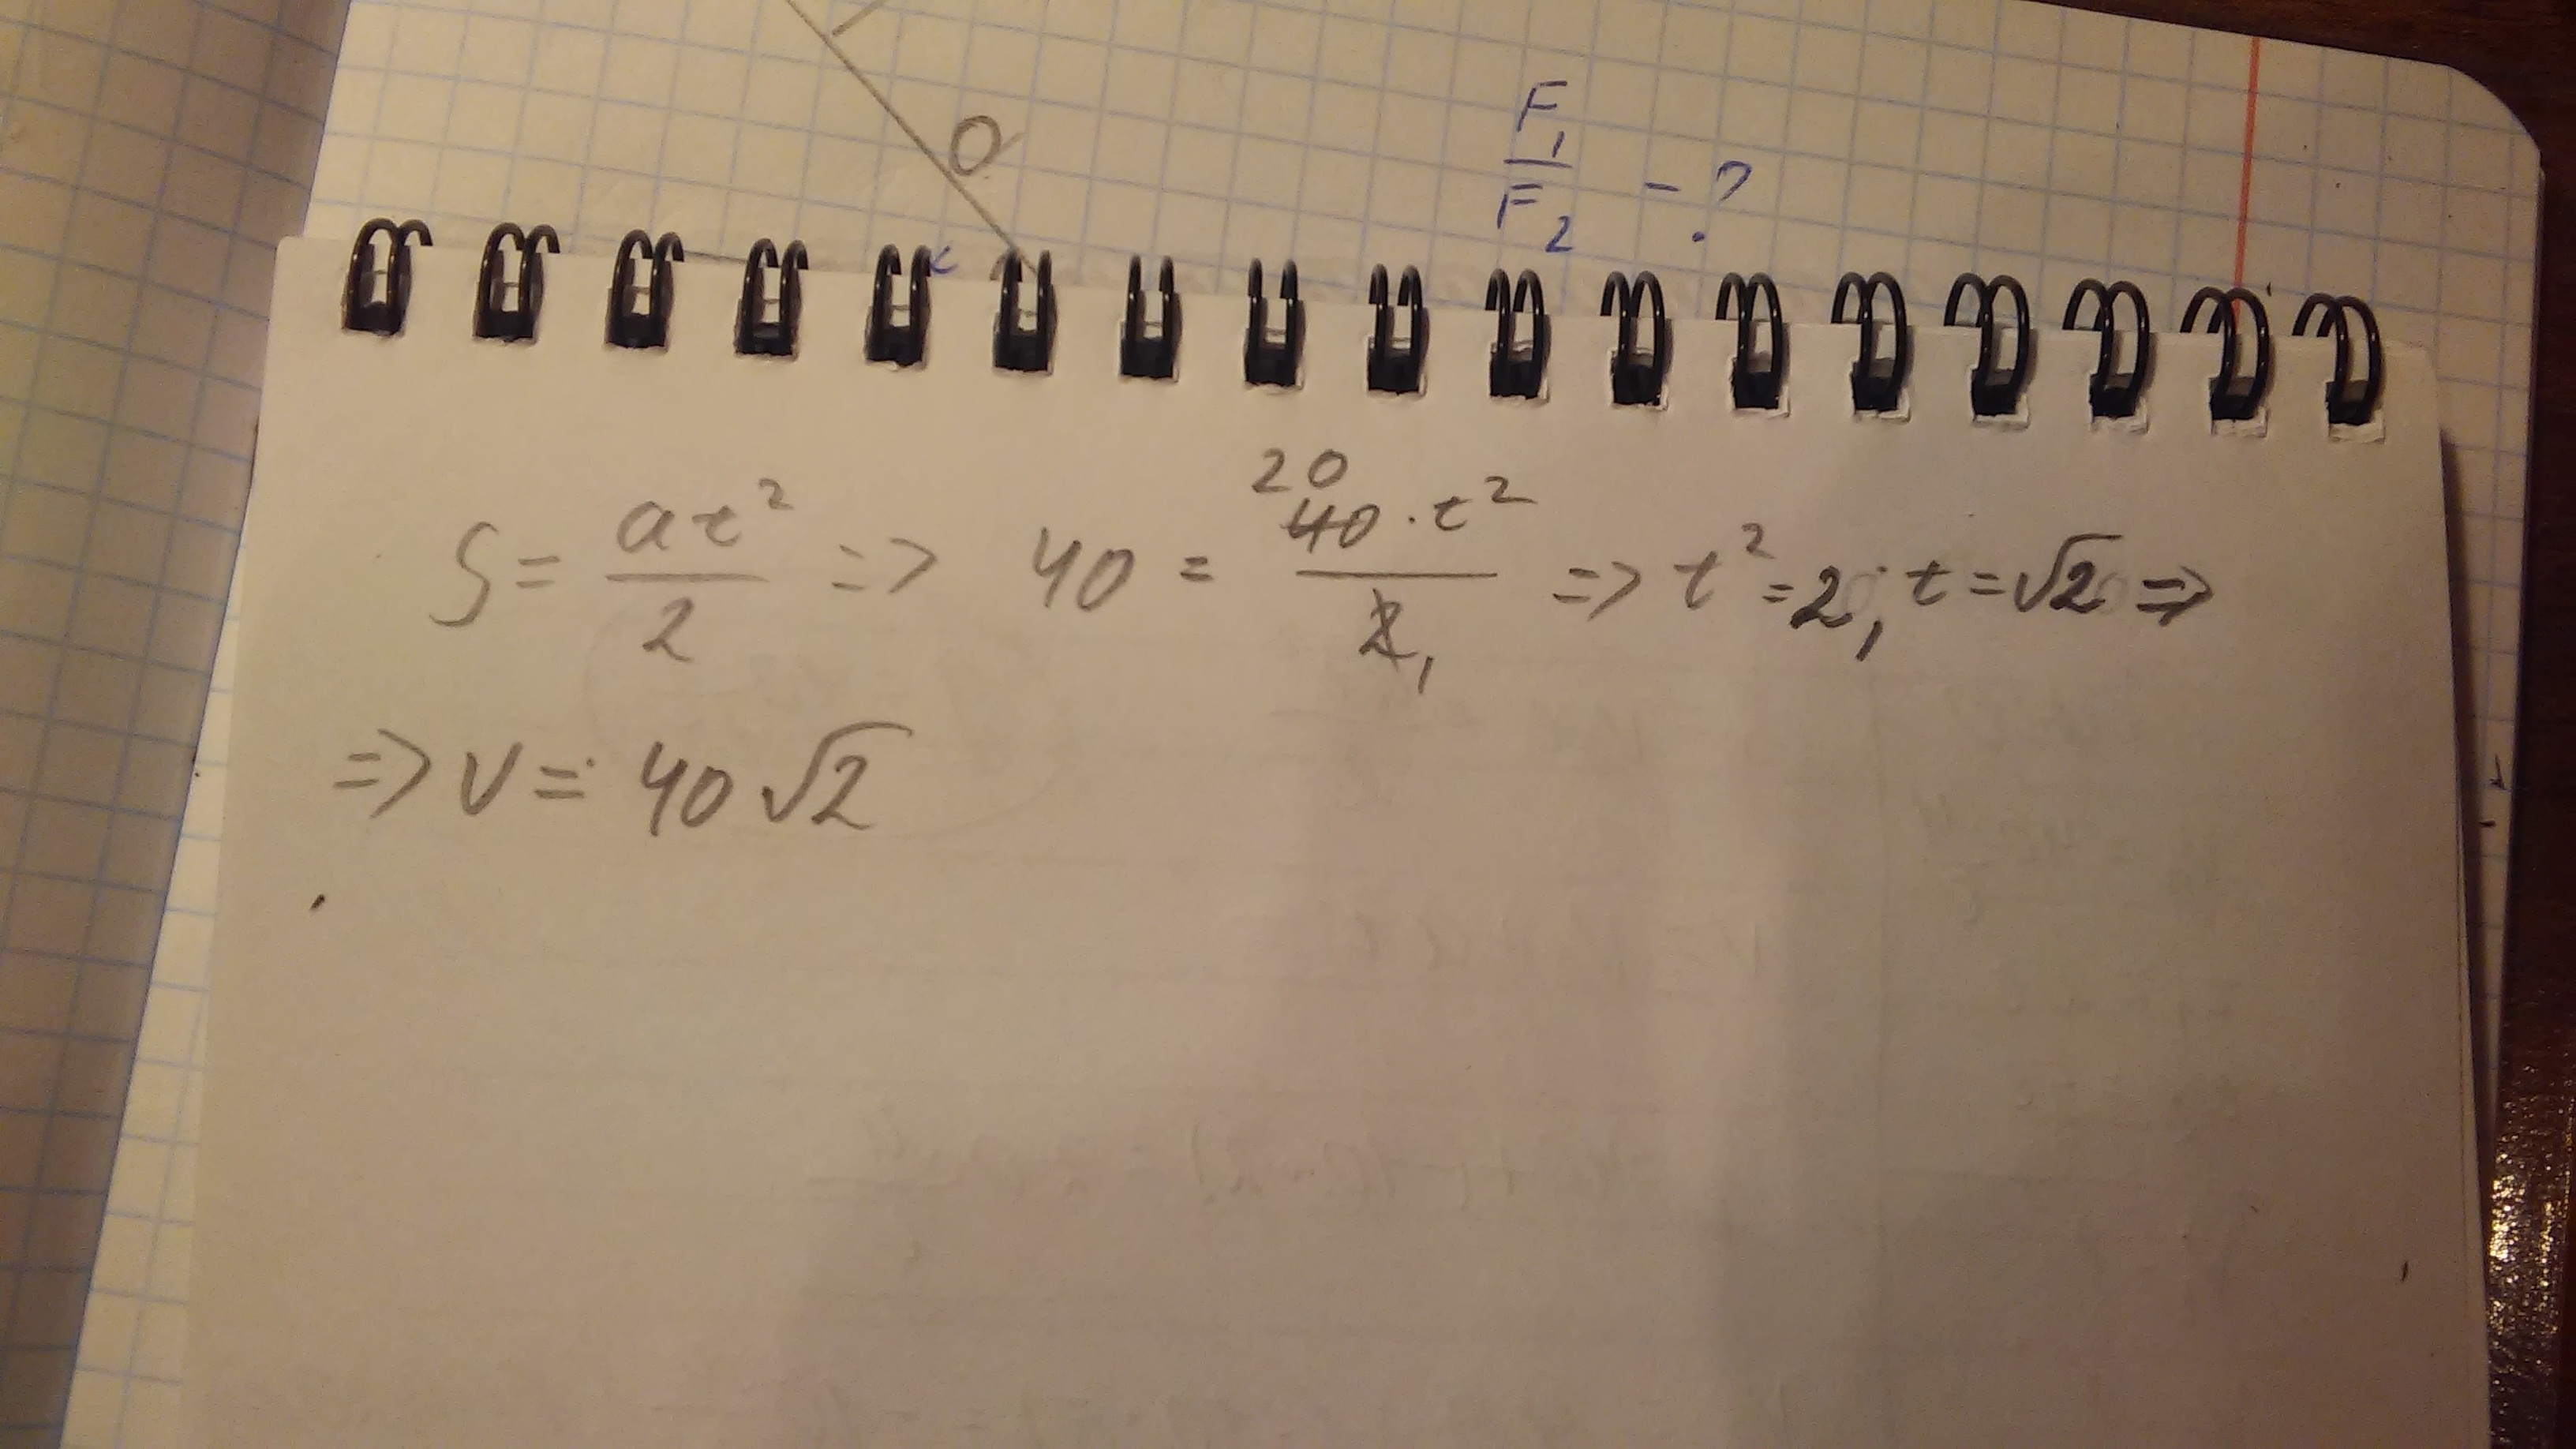 O
F₁/F₂ - ?
S = at²/2 => 40 = 20 40 · t²/2 1 => t² = 2, t = √2 =>
=> v = 40√2